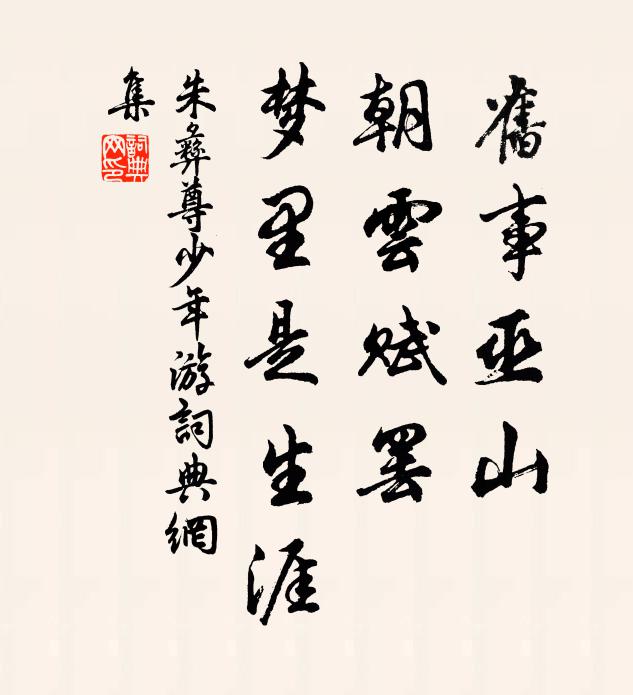 舊事巫山
朝雲賦罢
梦里是生涯
朱彝尊少年游詞典網
集
詞典
网印